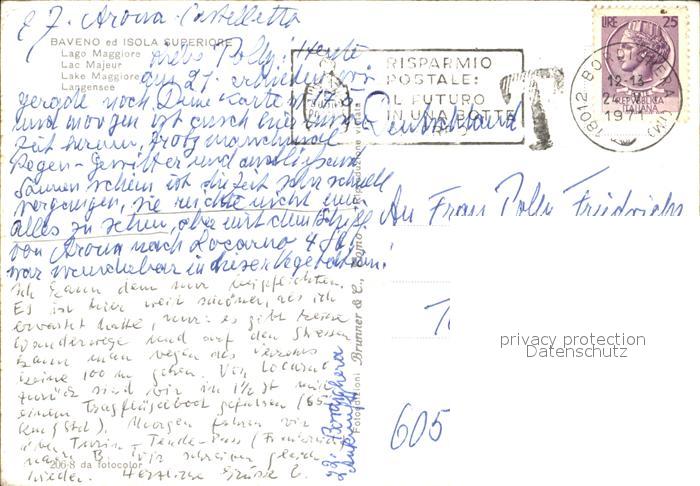 Arona-Castelletto
BAVENO ed ISOLA SUPERIORE
Lago Maggiore
Lac Majeur
Lake Maggiore
Langensee
Liebe Polly! Heute
am 27.
gerade noch Deine Karte
und morgen ist auch hier unsere
Zeit herum, trotz manchmal
Regen-Gewitter und
Sonnenschein ist die Zeit sehr schnell
vergangen, sie reichte nicht um
alles zu sehen, aber mit dem Schiff
von Arona nach Locarno 4 Std.
war wunderbar in dieser Vegetation!
Ich kann dem nur beipflichten.
Es ist hier weit schöner, als ich
erwartet hatte, nur: es gibt keine
Wanderwege und auf den Strassen
kann man wegen des Verkehrs
keine 100 m gehen. Von Locarno
zurück sind wir in 1½ St mit
einem Tragflügelboot gefahren (65
km/Std). Morgen fahren wir
über Turin - Tende-Pass (Frankreich)
nach B. Wir schreiben gleich
wieder. Herzliche Grüsse
206-8 da fotocolor
Bordighera
Ankunft
Fotoedizioni Brunner & C., Como - Riproduzione vietata
RISPARMIO
POSTALE:
IL FUTURO
IN UNA BOTTE
T
LIRE 25
REPUBBLICA
ITALIANA
18012 BORDIGHERA (IM)
12-13
24
197
Deutschland
An Frau Polly Friedrichs
605
privacy protection
Datenschutz